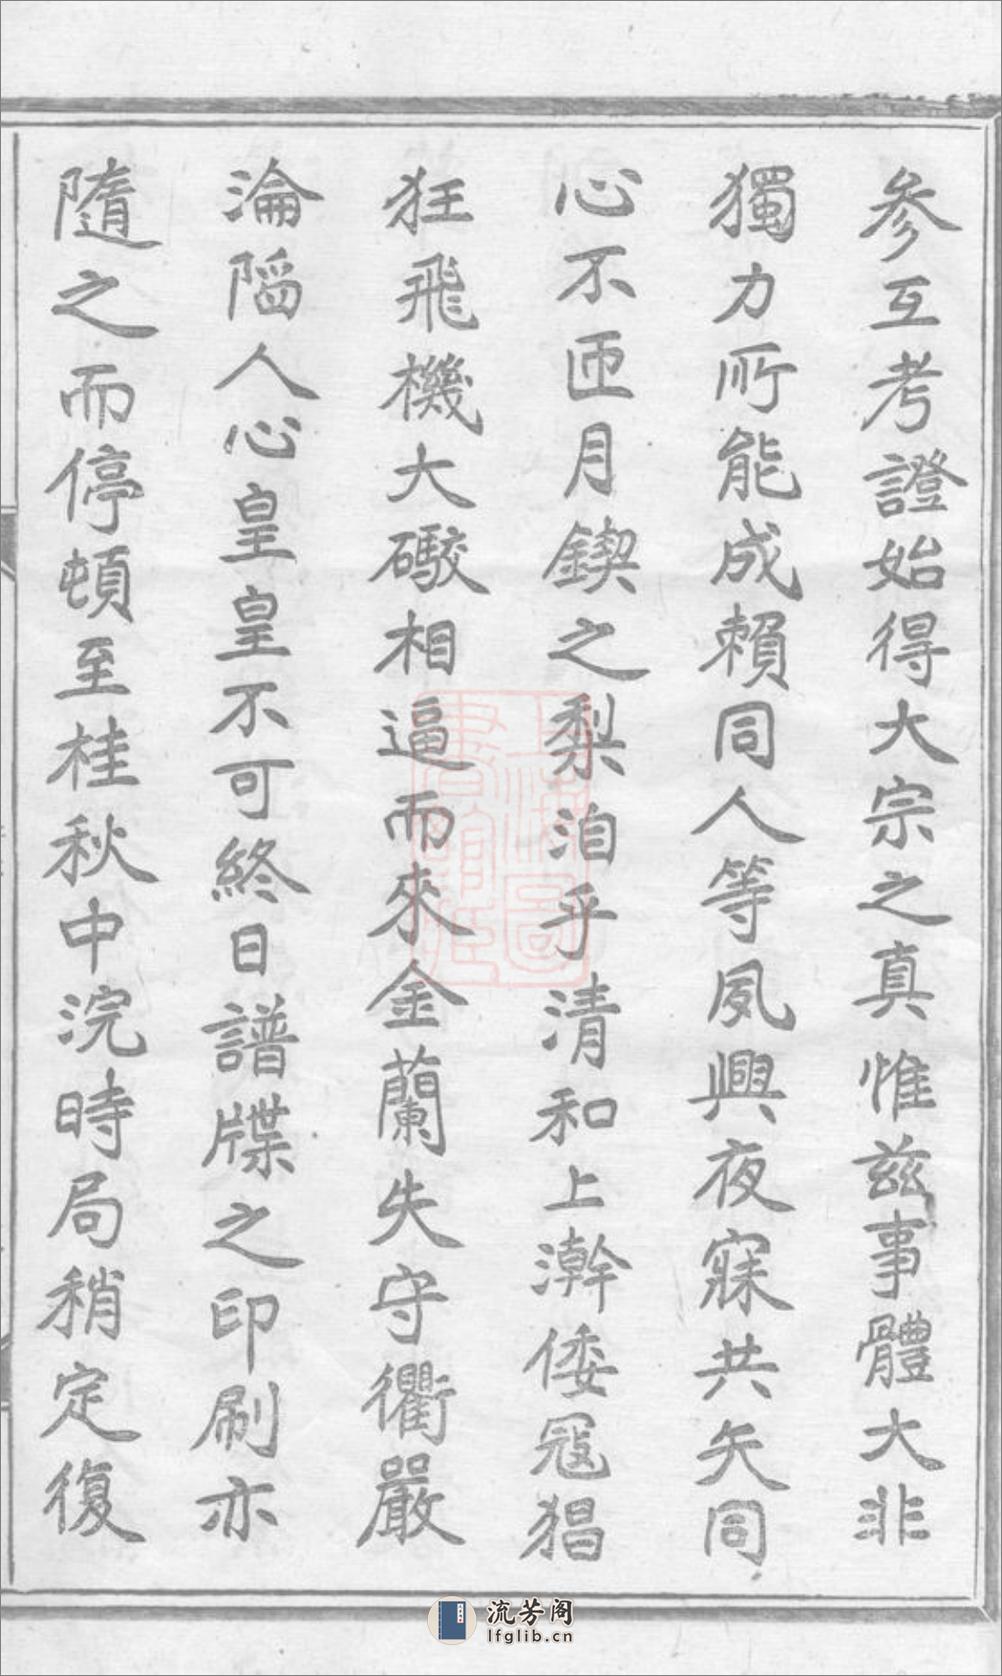 參互考證始得大宗之真惟茲事體大非
獨力所能成賴同人等夙興夜寐共矢同
心不匝月鍥之梨洎乎清和上澣倭寇猖
狂飛機大礮相逼而來金蘭失守衢嚴
淪陷人心皇皇不可終日譜牒之印刷亦
隨之而停頓至桂秋中浣時局稍定復
上海圖
書館藏
流芳阁
lfglib.cn